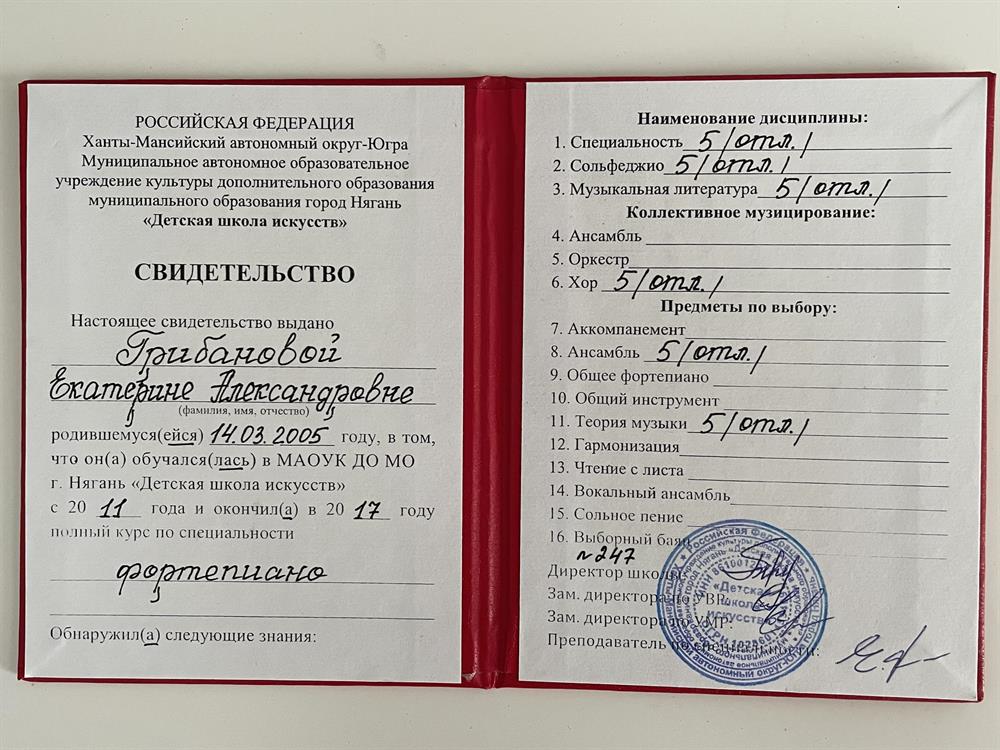 РОССИЙСКАЯ ФЕДЕРАЦИЯ
Ханты-Мансийский автономный округ-Югра
Муниципальное автономное образовательное
учреждение культуры дополнительного образования
муниципального образования город Нягань
«Детская школа искусств»
СВИДЕТЕЛЬСТВО
Настоящее свидетельство выдано
Грибановой
Екатерине Александровне
(фамилия, имя, отчество)
родившемуся(ейся) 14.03.2005 году, в том,
что он(а) обучался(лась) в МАОУК ДО МО
г. Нягань «Детская школа искусств»
с 20 11 года и окончил(а) в 20 17 году
полный курс по специальности
фортепиано
Обнаружил(а) следующие знания:
Наименование дисциплины:
1. Специальность 5 /отл./
2. Сольфеджио 5 /отл./
3. Музыкальная литература 5 /отл./
Коллективное музицирование:
4. Ансамбль
5. Оркестр
6. Хор 5 /отл./
Предметы по выбору:
7. Аккомпанемент
8. Ансамбль 5 /отл./
9. Общее фортепиано
10. Общий инструмент
11. Теория музыки 5 /отл./
12. Гармонизация
13. Чтение с листа
14. Вокальный ансамбль
15. Сольное пение
16. Выборный баян
№247
Директор школы:
Зам. директора по УВР:
Зам. директора по УМР:
Преподаватель по специальности:
Российская Федерация
«Детская
школа
искусств»